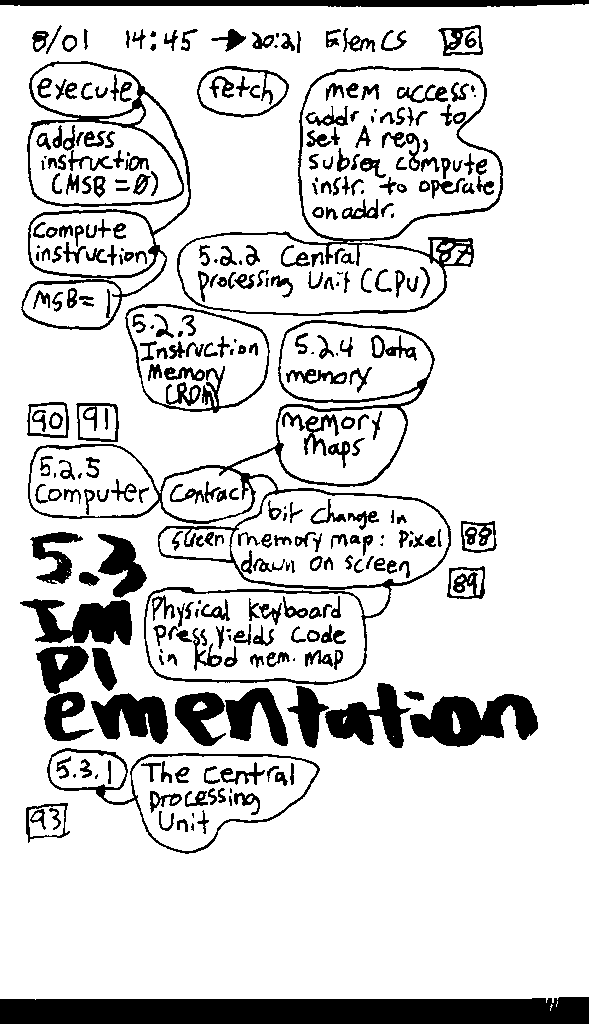 8/01 14:45 → 20:21 ElemCS 86
execute
fetch
mem access:
addr instr to
set A reg,
subseq compute
instr. to operate
on addr.
address
instruction
(MSB = 0)
compute
instruction
MSB = 1
87
5.2.2 Central
processing Unit (CPU)
5.2.3
Instruction
Memory
(ROM)
5.2.4 Data
memory
90 91
memory
maps
5.2.5
Computer
Contract
screen
bit change in
memory map: Pixel
drawn on screen
88
89
5.3
IM
Pl
ementation
Physical keyboard
press yields code
in kbd mem. map
5.3.1
The central
processing
Unit
93